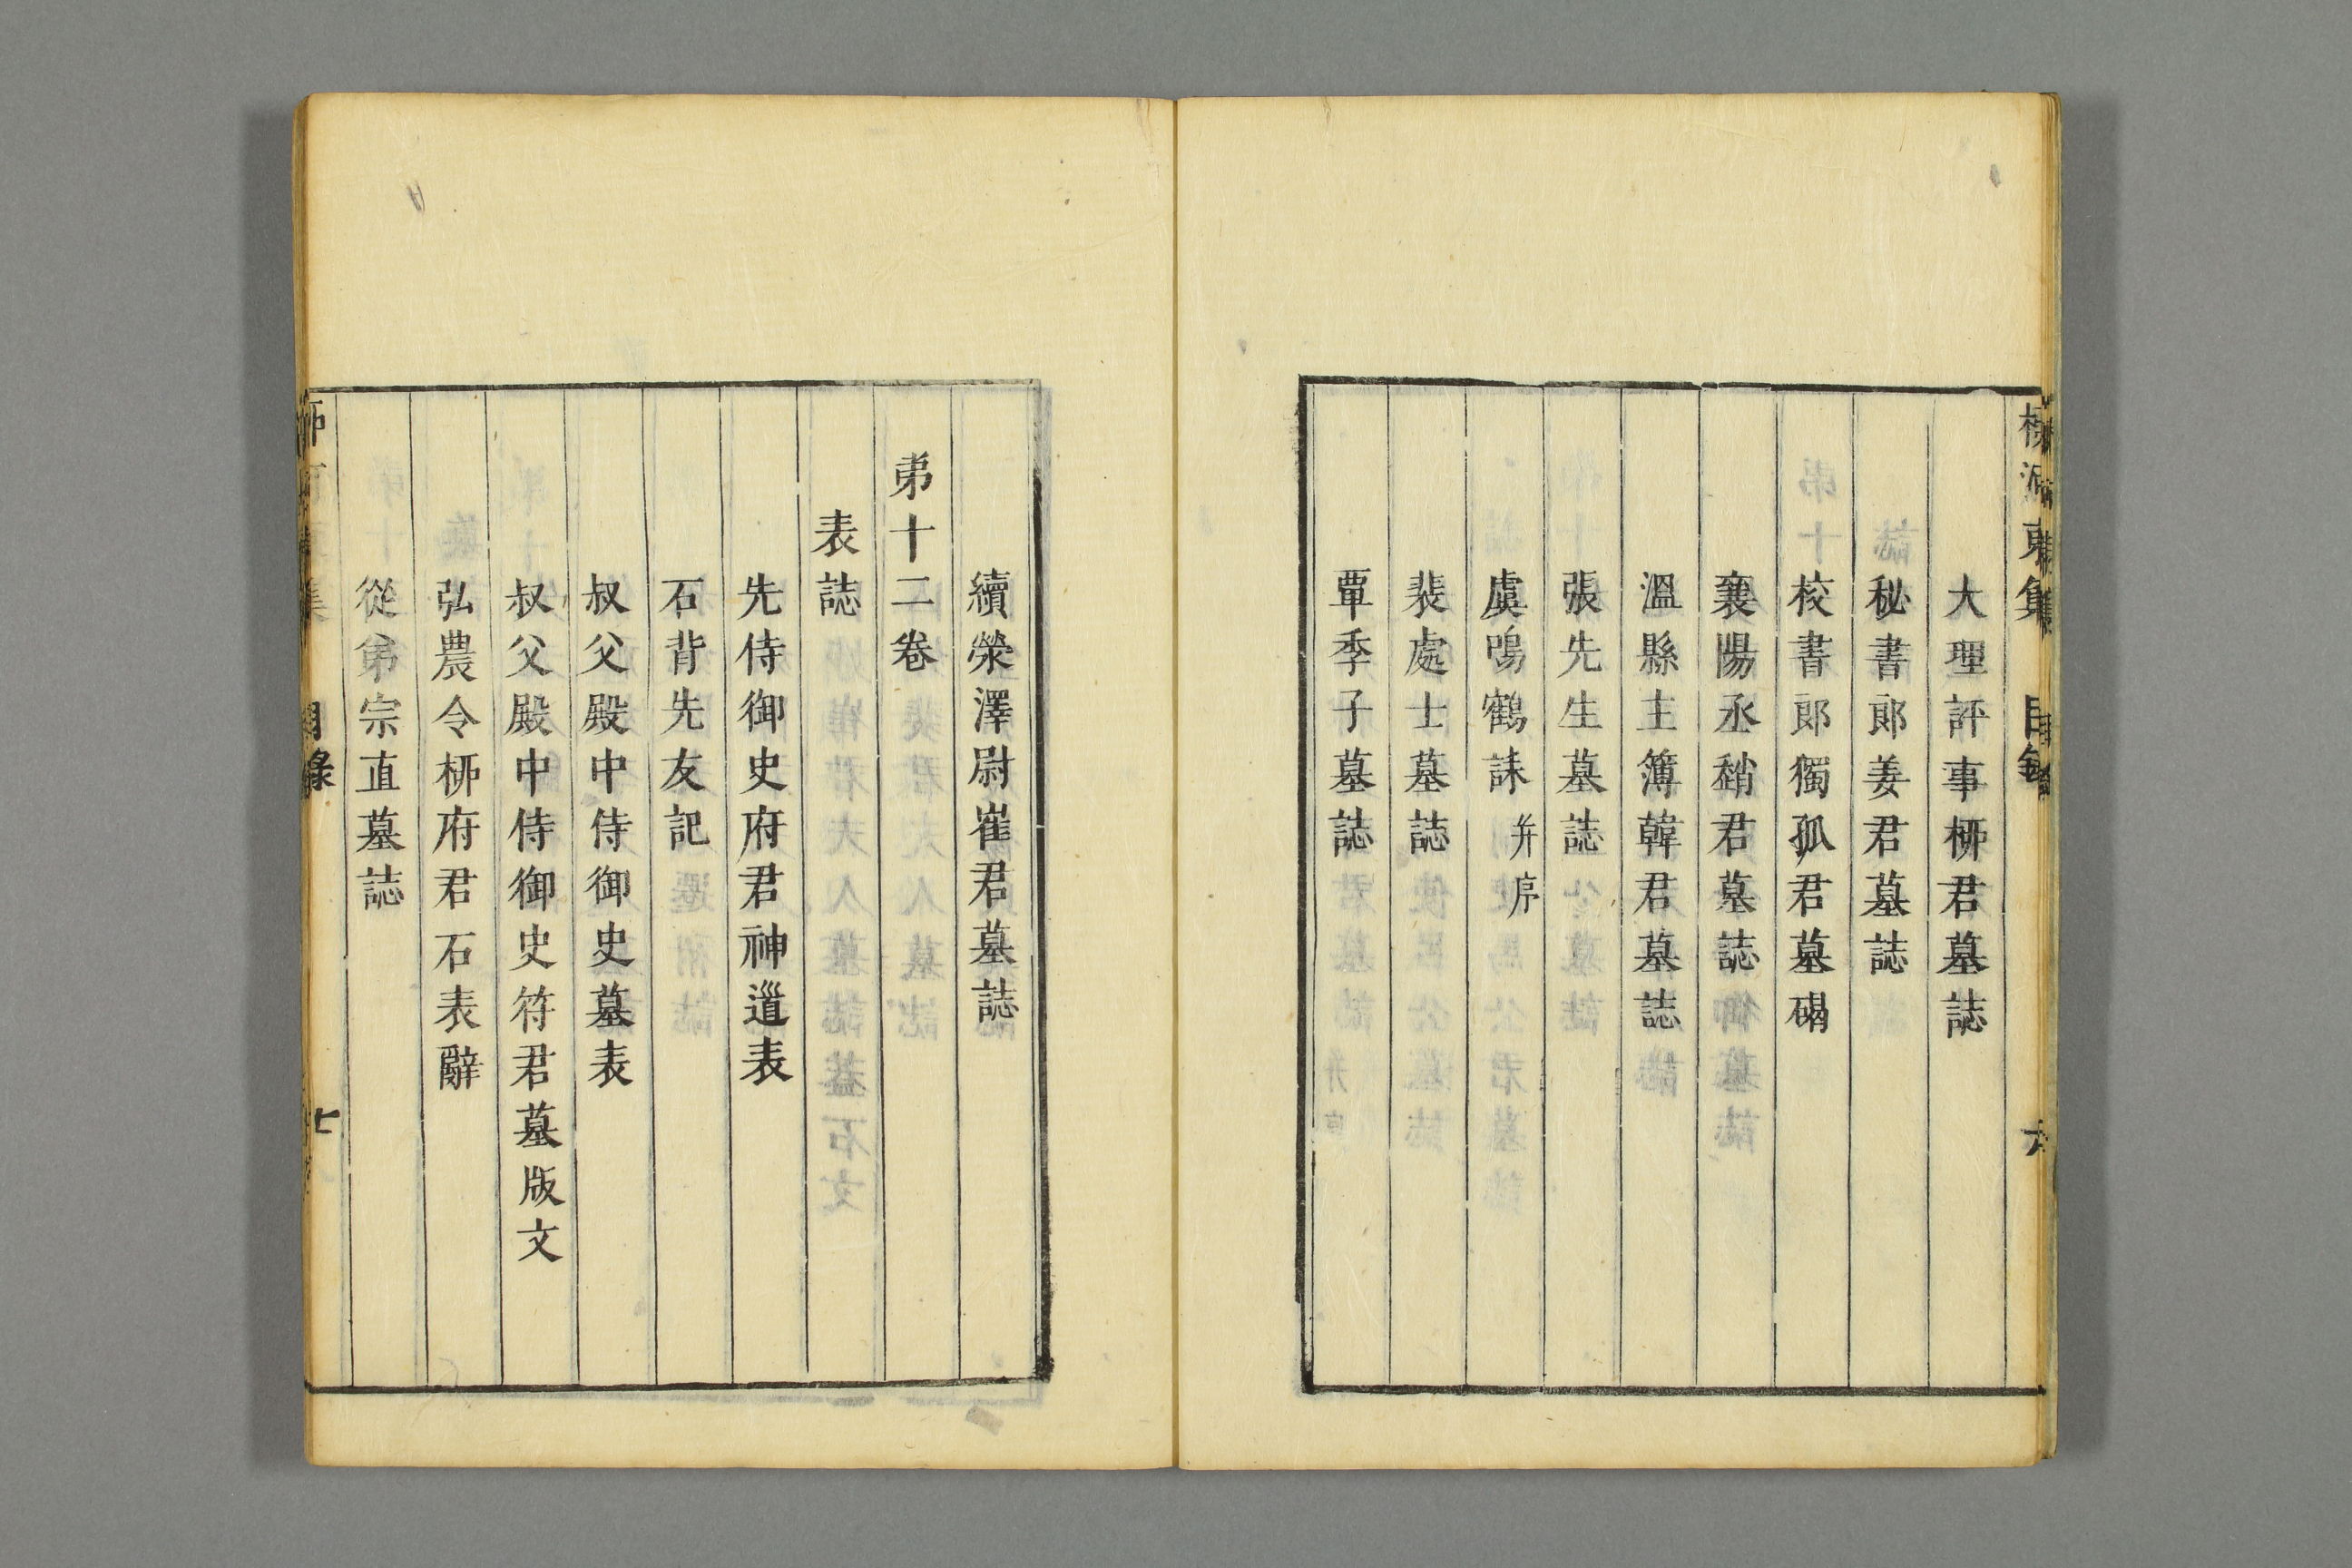 大理評事桺君墓誌
秘書郎姜君墓誌
校書郎獨孤君墓碣
襄陽丞趙君墓誌
溫縣主簿韓君墓誌
張先生墓誌
虞鳴鶴誄并序
裴處士墓誌
覃季子墓誌
續滎澤尉崔君墓誌
弟十二卷
表誌
先侍御史府君神道表
石背先友記
叔父殿中侍御史墓表
叔父殿中侍御史府君墓版文
弘農令桺府君石表辭
從弟宗直墓誌
目錄
七